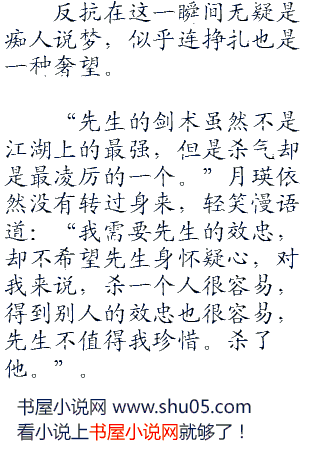 反抗在这一瞬间无疑是
痴人说梦，似乎连挣扎也是
一种奢望。
“先生的剑术虽然不是
江湖上的最强，但是杀气却
是最凌厉的一个。”月瑛依
然没有转过身来，轻笑漫语
道：“我需要先生的效忠，
却不希望先生身怀疑心，对
我来说，杀一个人很容易，
得到别人的效忠也很容易，
先生不值得我珍惜。杀了
他。”。
书屋小说网 www.shu05.com
看小说上书屋小说网就够了！